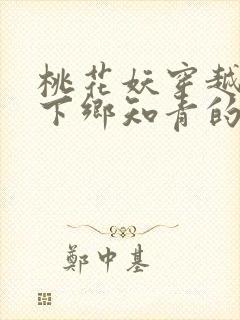 桃花妖穿越
下鄉知青的
鄭中基